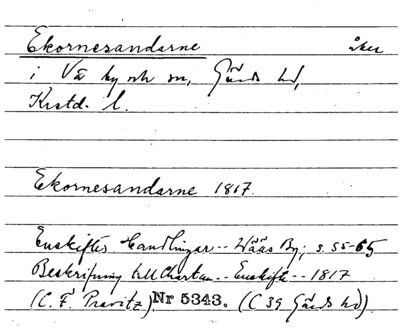 Ekornesandarne åker
i Vä by och sn, Gärds hd,
Krstd. l.
Ekornesandarne 1817.
Enskiftes Handlingar -- Wääs By; s. 55-65
Beskrifning till Chartan -- Enskifte -- 1817
(C. F. Pravitz). Nr 5343. (C 39 Gärds hd).